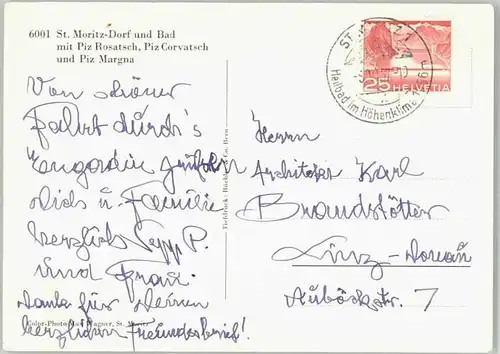 6001 St. Moritz-Dorf und Bad
mit Piz Rosatsch, Piz Corvatsch
und Piz Margna
Von schöner
Fahrt durch's
Engadin grüßen
Dich u. Familie
herzlich Sepp P.
und Frau.
Danke für Deinen
herzlichen Freundesbrief!
Color-Photo Wagner, St. Moritz
Tiefdruck: Büchler & Co. Bern
ST. MORITZ 1
Heilbad im Höhenklima 1856 m
25 HELVETIA
Herrn
Architekt Karl
Brandstötter
Linz-Donau
Auböckstr. 7